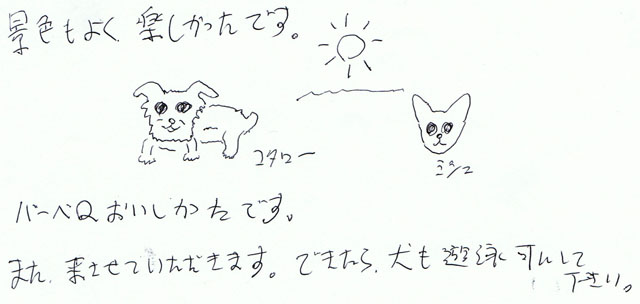 景色もよく楽しかったです。
コタロー
ミケコ
バーベQおいしかたです。
また、来させていただきます。できたら、犬も遊泳可にして
下さい。